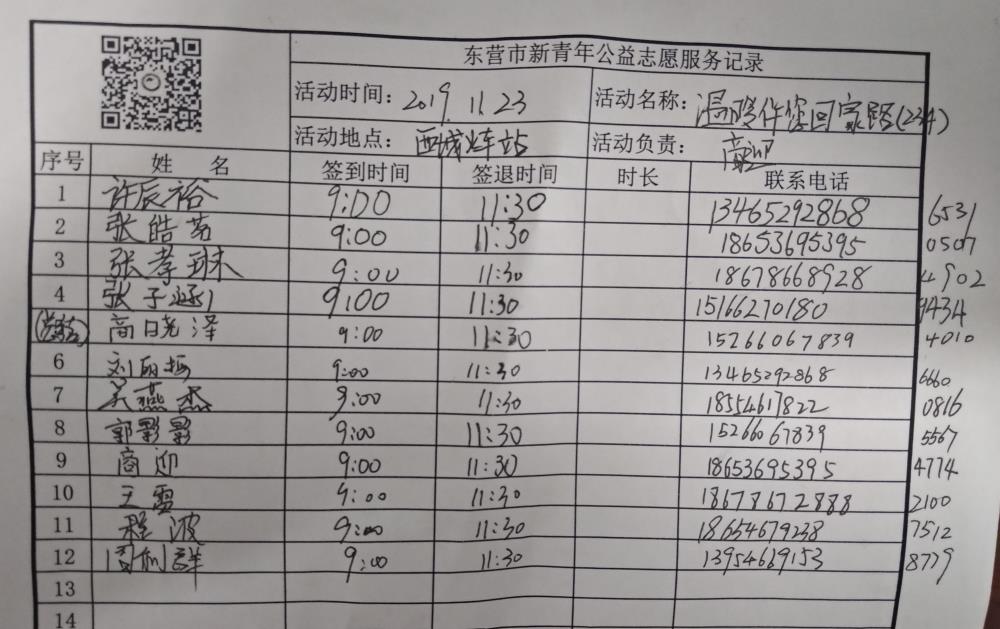 东营市新青年公益志愿服务记录
活动时间：2019.11.23 活动名称：温暖伴您回家路(234)
活动地点：西城火车站 活动负责：商迎
序号 姓 名 签到时间 签退时间 时长 联系电话
1 许辰裕 9:00 11:30 13465292868 6531
2 张皓茗 9:00 11:30 18653695395 0507
3 张孝琳 9:00 11:30 18678668928 4902
4 张子涵 9:00 11:30 15166270180 9434
高晓泽 9:00 11:30 15266067839 4010
6 刘丽梅 9:00 11:30 13465292868 6660
7 吴燕杰 9:00 11:30 18554617822 0816
8 郭影影 9:00 11:30 15266067839 5567
9 商迎 9:00 11:30 18653695395 4774
10 王雪 9:00 11:30 18678672888 2100
11 程波 9:00 11:30 18654679238 7512
12 周利群 9:00 11:30 13954669153 8779
13
14